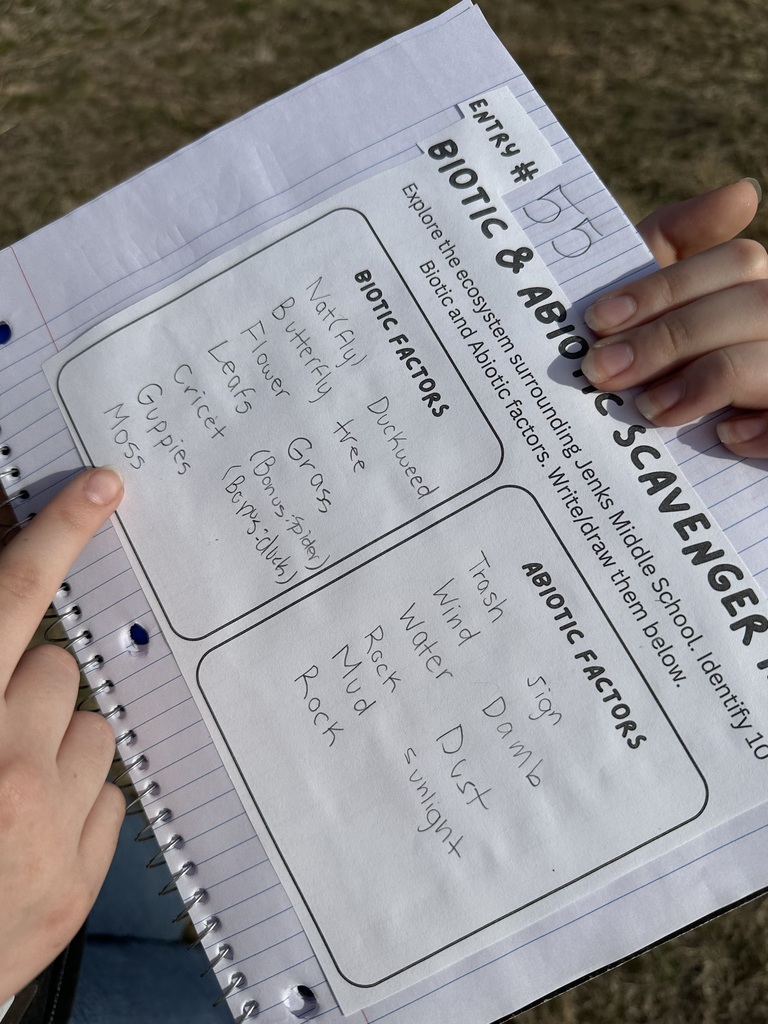 ENTRY # 55
BIOTIC & ABIOTIC SCAVENGER
Explore the ecosystem surrounding Jenks Middle School. Identify 10
Biotic and Abiotic factors. Write/draw them below.
BIOTIC FACTORS
Nat(fly)
Butterfly
Flower
Leafs
Cricet
Guppies
Moss
Duckweed
tree
Grass
(Bonus:spider)
(Bonus:duck)
ABIOTIC FACTORS
Trash
Wind
Water
Rock
Mud
Rock
sign
Damb
Dust
sunlight